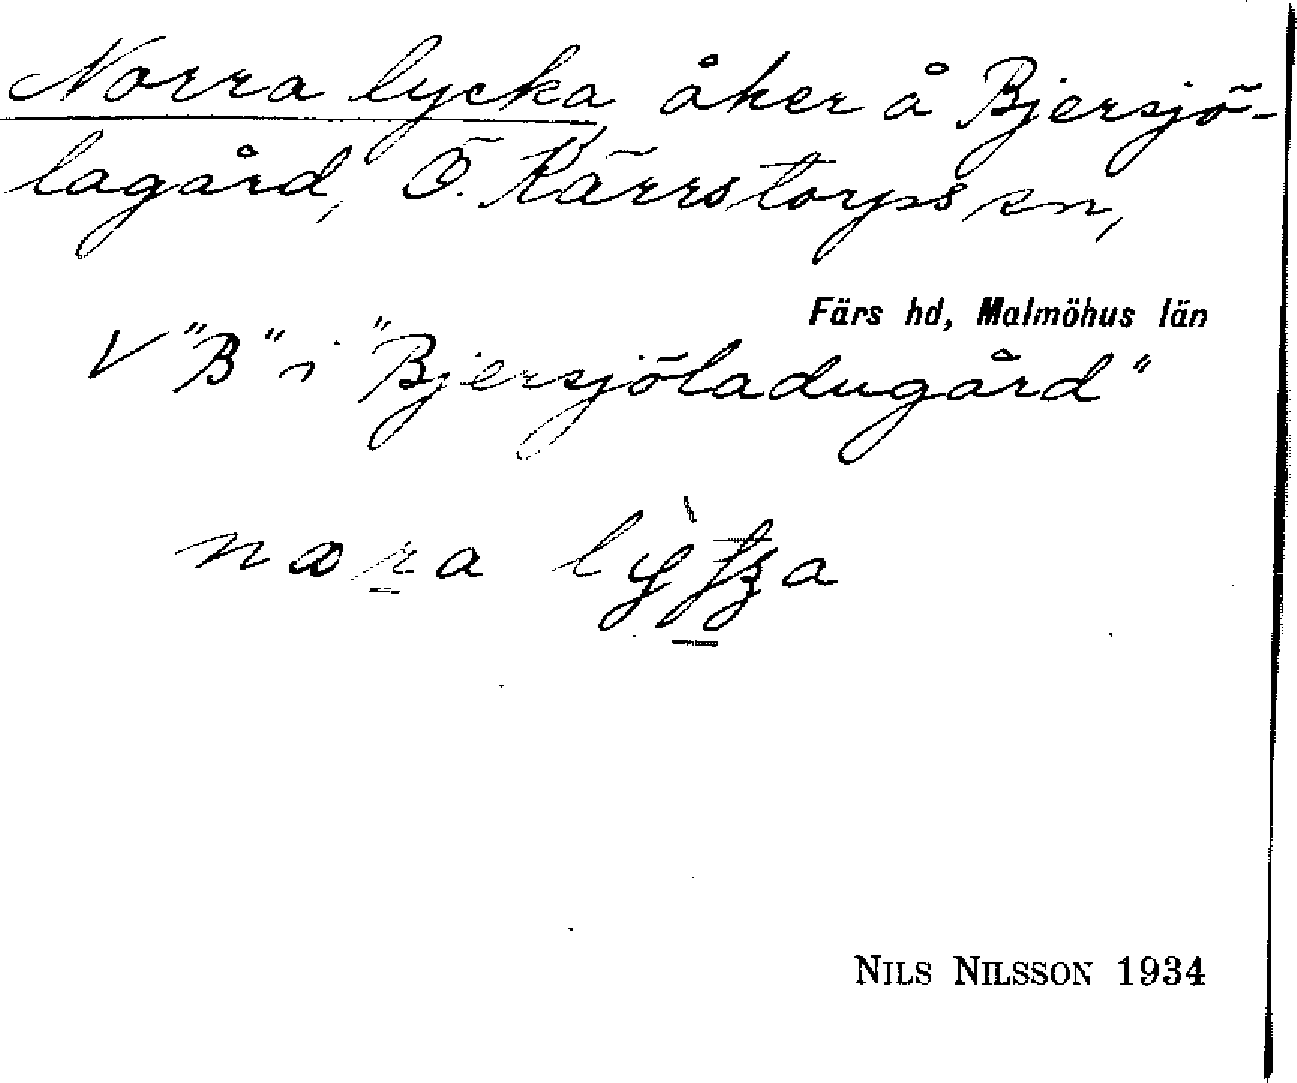 Norra lycka åker å Bjersjö-
lagård, Ö. Kärrstorps sn,
Färs hd, Malmöhus län
V "B" i "Bjersjöladugård"
NILS NILSSON 1934